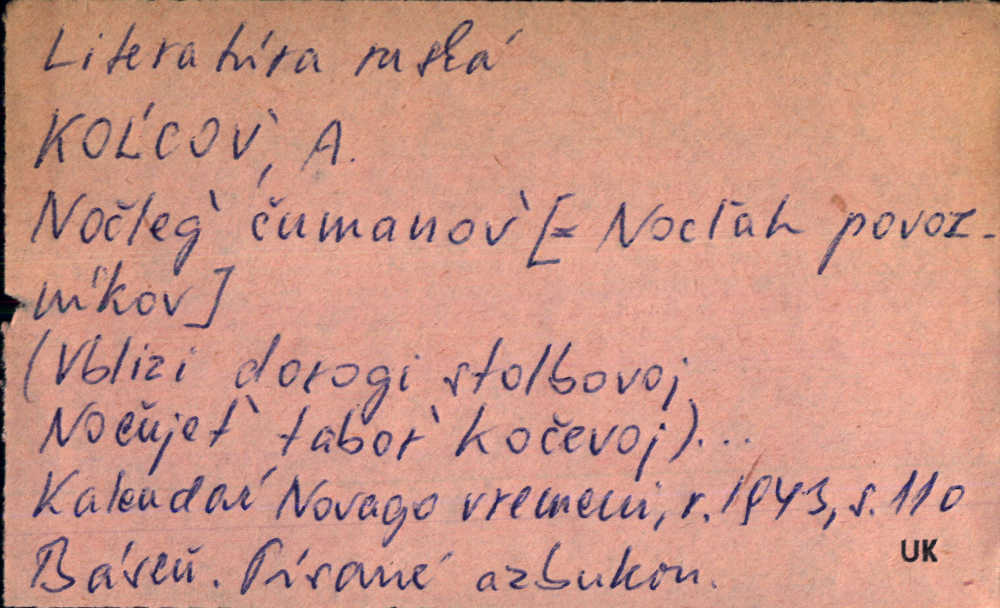 Literatúra ruská
KOĽCOV̀, A.
Nočleg̀ čumakov̀ [= Nocľah povoz-
níkov]
(Vblizi dorogi stolbovoj
Nočujet̀ tabor̀ kočevoj)...
Kalendaŕ Novago vremeni, r. 1943, s. 110
Báseň. Písané azbukou.
UK